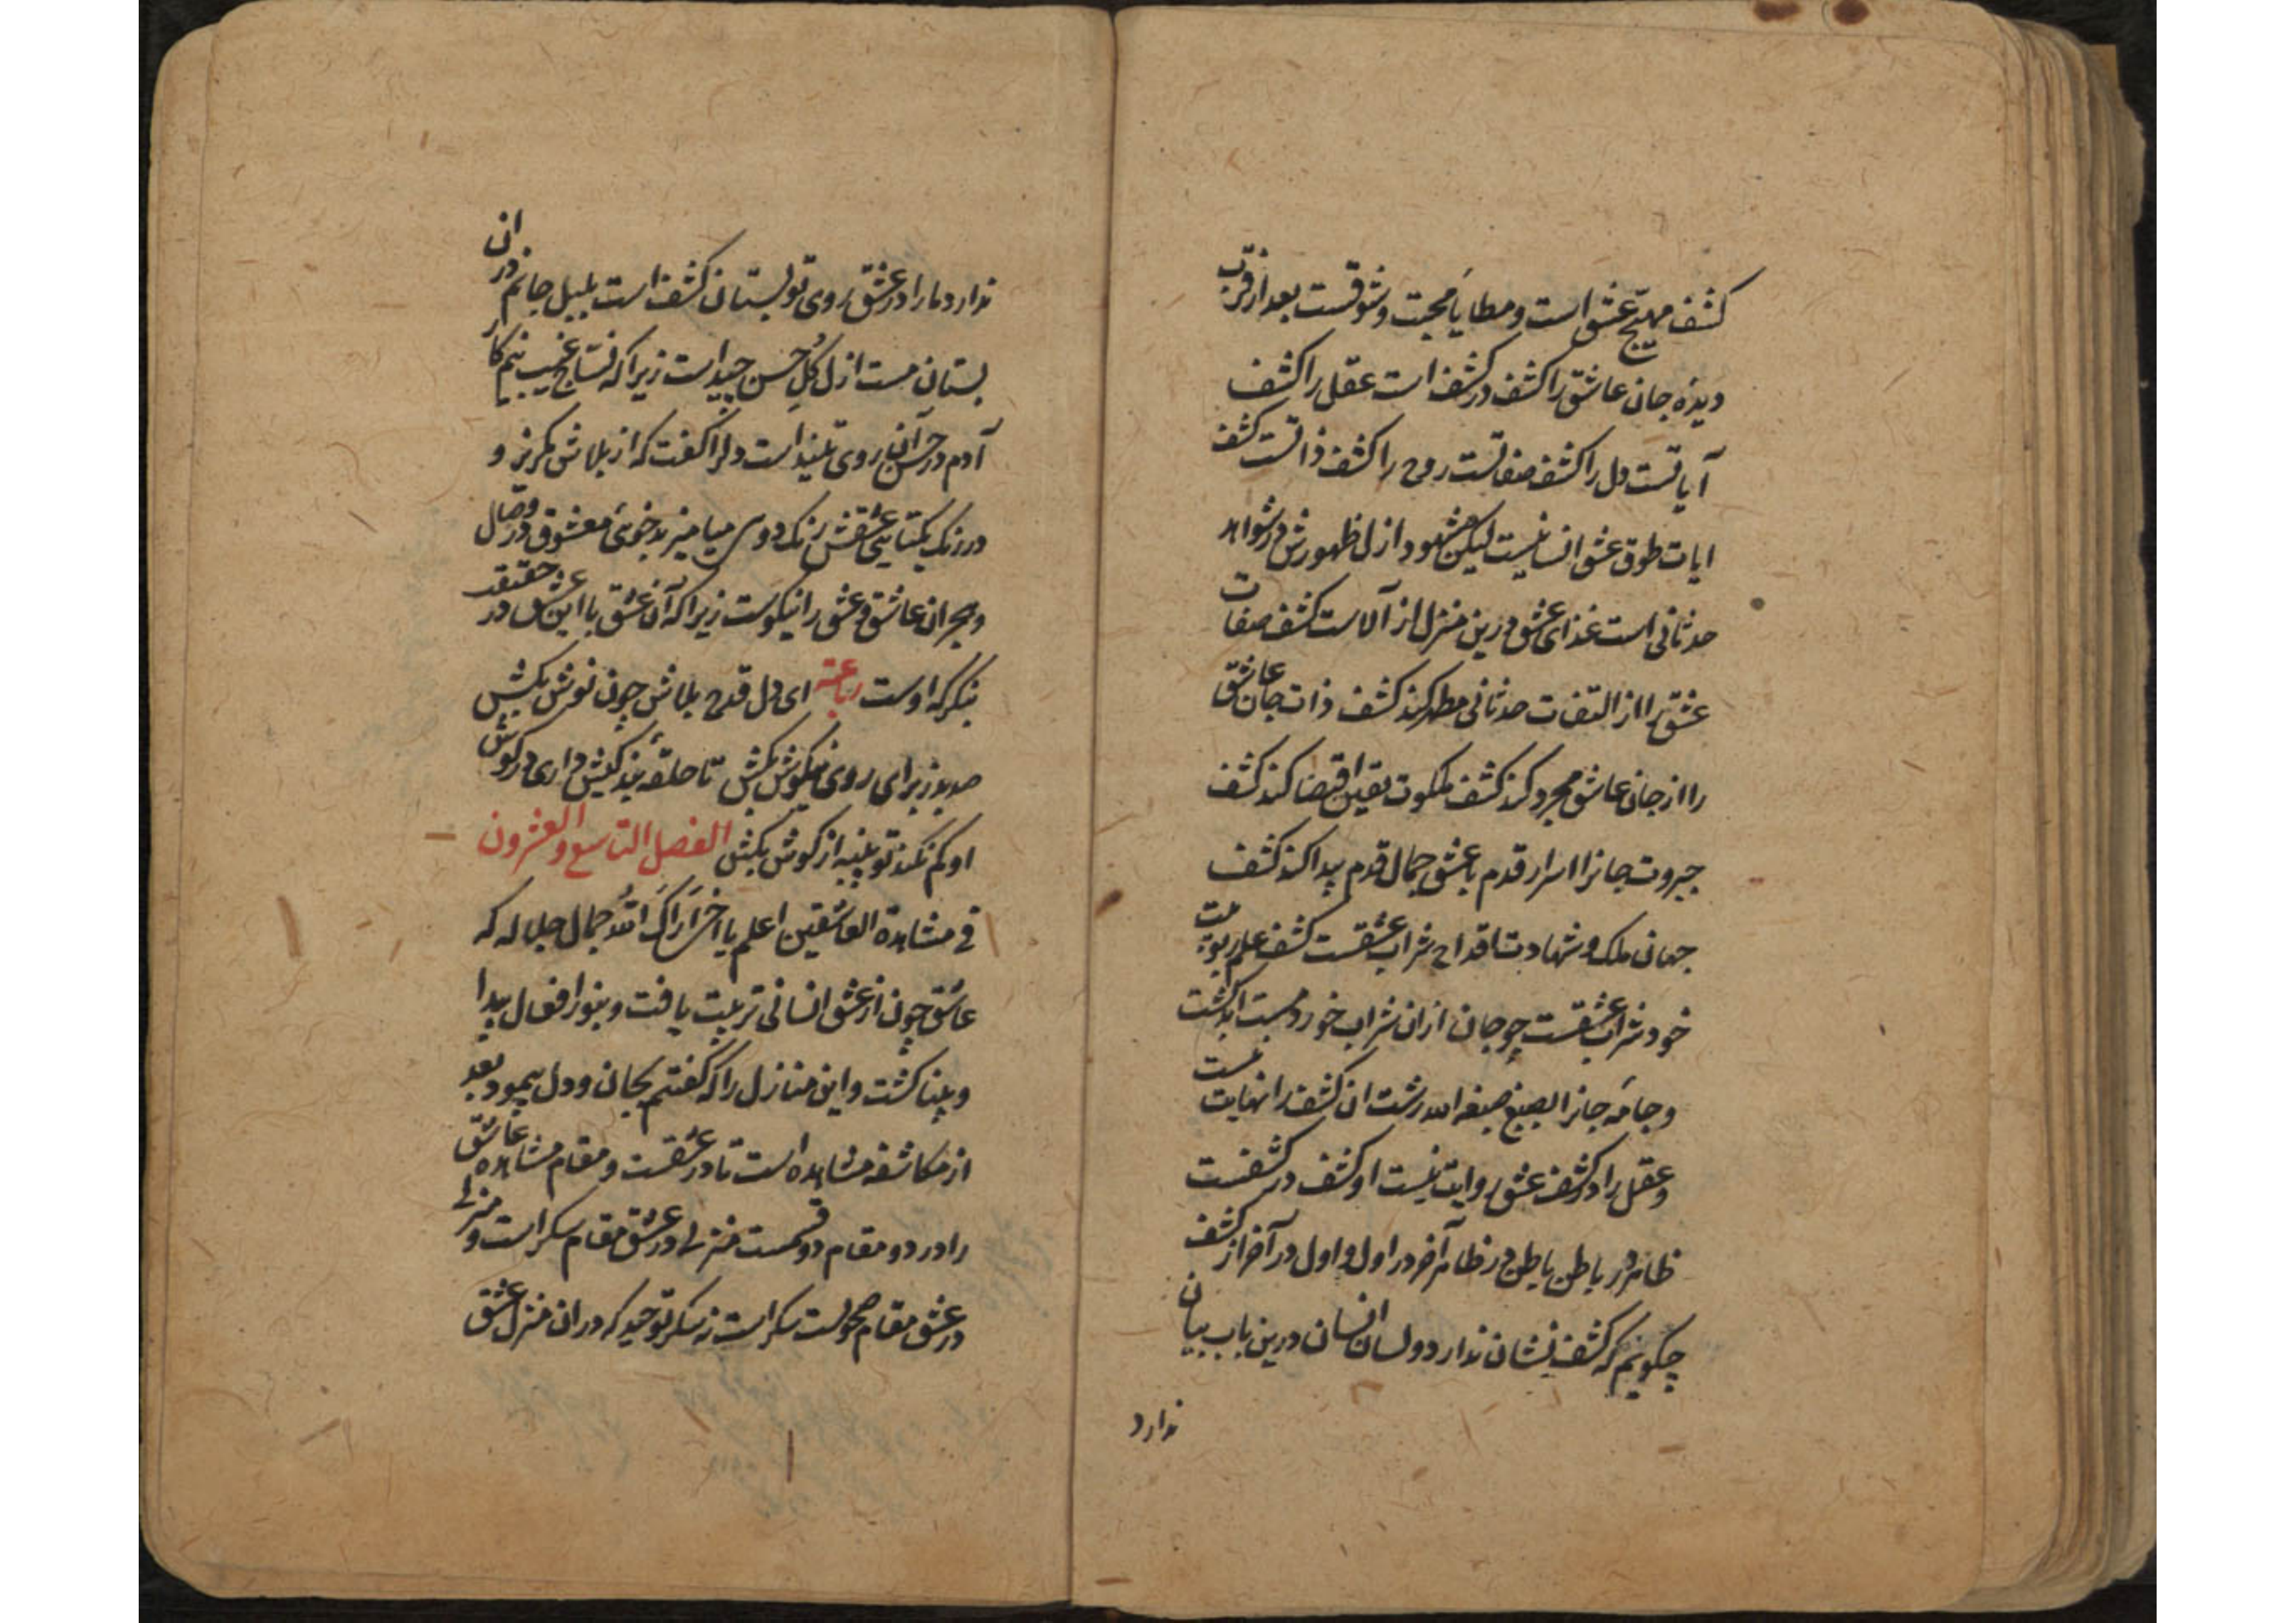 کشف مهیج عشق است و مطایا محبت و شوقست بعد از قرب
دیده جان عاشق را کشف در کشف است عقل را کشف
آیاتست دل را کشف صفاتست روح را کشف ذاتست کشف
ایات طوق عشق انسانیست لیکن مشهود ازل ظهورش در شواهد
حدثانی است غذای عشق درین منزل از آلاست کشف صفات
عشق را از التفات حدثانی مطهر کند کشف ذات جان عاشق
را از جان عاشق مجرد کند کشف ملکوت یقین اقتضا کند کشف
جبروت جانرا اسرار قدم با عشق جمال قدم پیدا کند کشف
جهان ملک و شهادت اقداح شراب عشقست کشف علم ربوبیت
خود شراب عشقست چو جان ازان شراب خورد مست ابد گشت
و جامه جانرا بصبغ صبغه الله رشت ان کشف را نهایت نیست
و عقل را در کشف عشق روایت نیست او کشف در کشفست
ظاهر در باطن باطن در ظاهر آخر در اول و اول در آخر از کشف
چکویم که کشف نشان ندارد و لسان انسان درین باب بیان
ندارد
ندارد ما را در عشق روی تو بستان کشف است بلبل جانم در ان
بستان مست ازل کل حسن چیده است زیرا که نساج غیب نیم کار
آدم در حسن آن روی تنیده است دلرا کفت که از بلاش مکریز و
در رنک یکتایی عشقش رنک دویی میامیز بدخویی معشوق در وصال
و هجران عاشق و عشق را نیکوست زیرا که آن عشق با این عشق در حقیقت
بنکر که اوست رباعیه ای دل قدح بلاش چون نوش بکش
صد بد ز برای روی نیکوش بکش تا حلقه بندکیش داری در کوش
او کم نکند تو پنبه از کوش بکش الفصل التاسع و العشرون
فی مشاهدة العاشقین اعلم یا اخی اراک الله جمال جلاله که
عاشق چون از عشق انسانی تربیت یافت و بنور افعال پیدا
و بینا کشت و این منازل را که کفتم بجان و دل بپیمود بعد
از مکاشفه مشاهده است تا در عشقست و مقام مشاهده عاشق
را در دو مقام دو قسمست منزلی در عشق مقام سکر است و منزلی
در عشق مقام صحو است سکر است نه سکر توحید که در ان منزل عشق